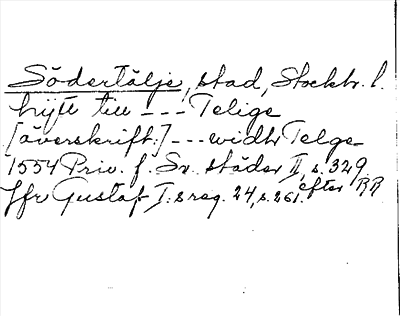 Södertälje, stad, Stockh. l.
bytt till --- Telige
[överskrift.] --- widh Telge
1554 Priv. f. Sv. städer II, s. 329
Jfr Gustaf I:s reg. 24, s. 261. efter RR